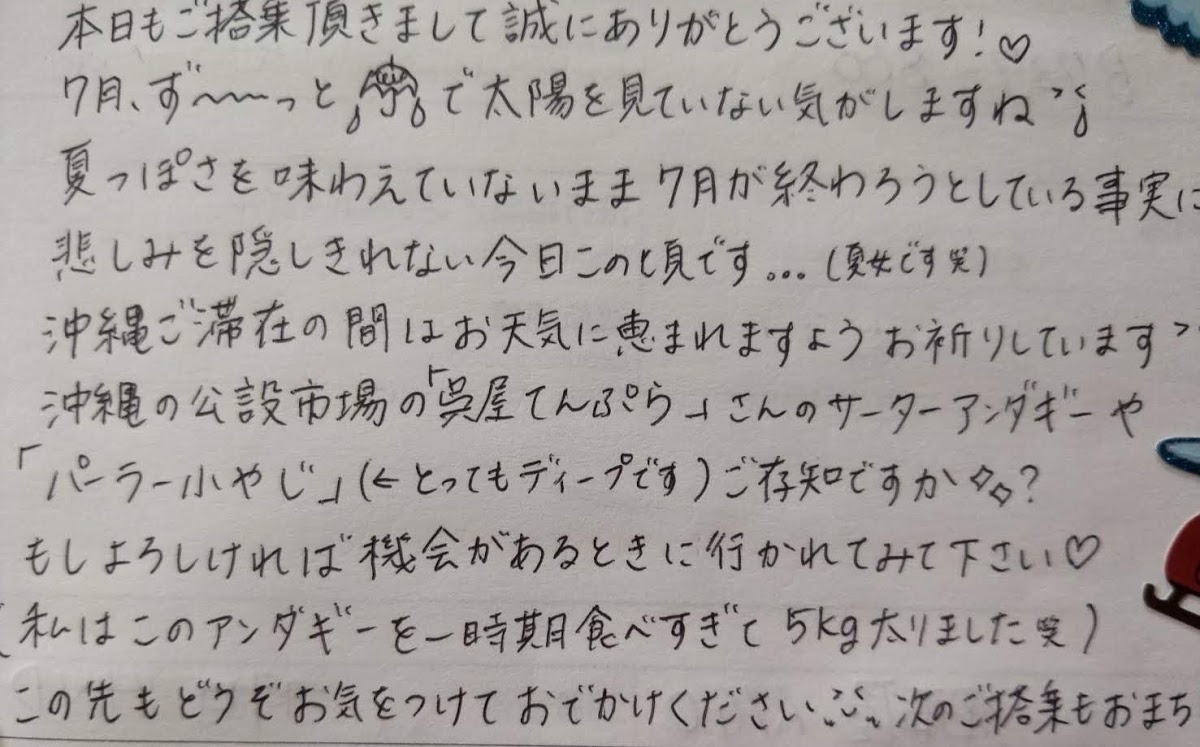 本日もご搭乗頂きまして誠にありがとうございます!♡
7月、ず〜〜っと☂で太陽を見ていない気がしますね
夏っぽさを味わえていないまま7月が終わろうとしている事実に
悲しみを隠しきれない今日この頃です...(夏女です笑)
沖縄ご滞在の間はお天気に恵まれますようお祈りしています
沖縄の公設市場の「呉屋てんぷら」さんのサーターアンダギーや
「パーラー小やじ」(←とってもディープです)ご存知ですか?
もしよろしければ機会があるときに行かれてみて下さい♡
(私はこのアンダギーを一時期食べすぎて5kg太りました笑)
この先もどうぞお気をつけておでかけください 次のご搭乗もおまち